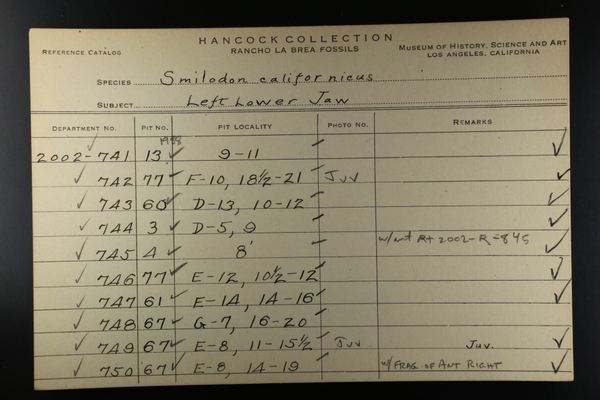 HANCOCK COLLECTION
REFERENCE CATALOG RANCHO LA BREA FOSSILS MUSEUM OF HISTORY, SCIENCE AND ART
LOS ANGELES, CALIFORNIA
SPECIES Smilodon californicus
SUBJECT Left Lower Jaw
DEPARTMENT NO. PIT NO. PIT LOCALITY PHOTO NO. REMARKS
2002-741 13 9-11
742 77 F-10, 18½-21 Juv
743 60 D-13, 10-12
744 3 D-5, 9
745 4 8' w/ant Rt 2002-R-845
746 77 E-12, 10½-12
747 61 E-14, 14-16
748 67 G-7, 16-20
749 67 E-8, 11-15½ Juv Juv.
750 67 E-8, 14-19 w/ FRAG. OF ANT RIGHT